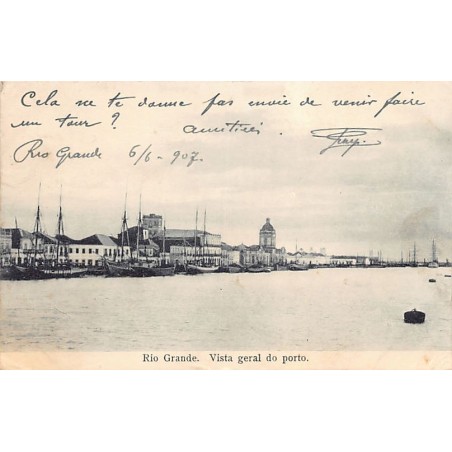 Cela ne te donne pas envie de venir faire
un tour ?
amitiés
Rio Grande 6/6 - 907.
Rio Grande. Vista geral do porto.